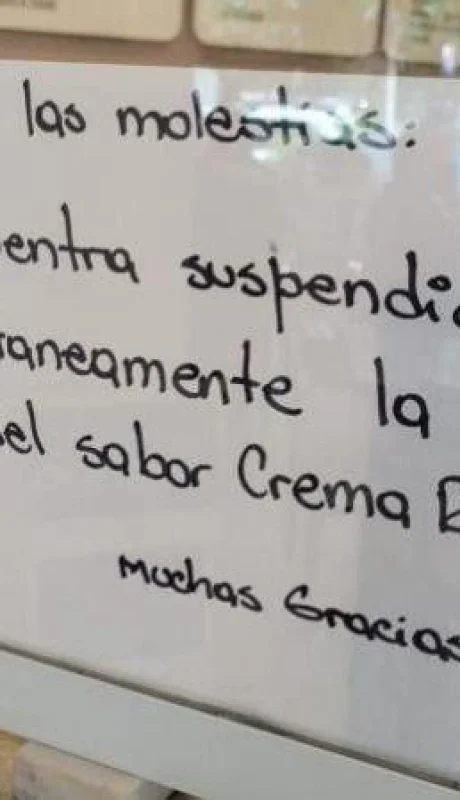 las molestias:
entra suspendi
raneamente la
el sabor Crema
Muchas Gracias